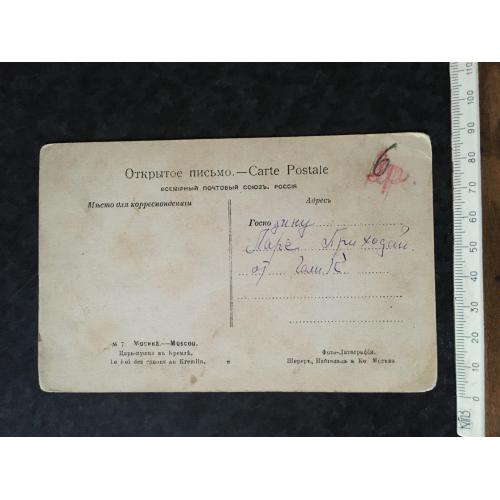 6
Открытое письмо.—Carte Postale
ВСЕМІРНЫЙ ПОЧТОВЫЙ СОЮЗЪ. РОССІЯ
Мѣсто для корреспонденціи
Адресъ
Господину
Ларе Приходай
от Гали К
№ 7. Москва.—Moscou.
Царь-пушка въ Кремлѣ.
Le Roi des canons au Kremlin.
Фото-Литографія.
Шереръ, Набгольцъ и Ко. Москва.
10 20 30 40 50 60 70 80 90 100 110